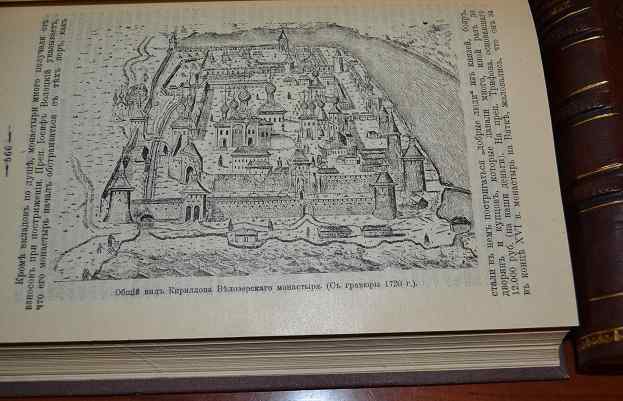 — 566 —
Кромѣ вкладовъ по душѣ, монастыри много получали отъ
взносовъ при постриженіи. Преп. Іосифъ Волоцкій указываетъ,
что его монастырь началъ обстраиваться съ тѣхъ поръ, какъ
Общій видъ Кириллова Бѣлозерскаго монастыря. (Съ гравюры 1720 г.).
стали въ немъ постригаться „добрые люди“ изъ князей, бояръ,
дворянъ и купцовъ, которые давали много, иной разъ до
12,000 руб. (на наши деньги). На преп. Трифона, основавшаго
въ концѣ XVI в. монастырь на Вяткѣ, жаловались, что онъ за